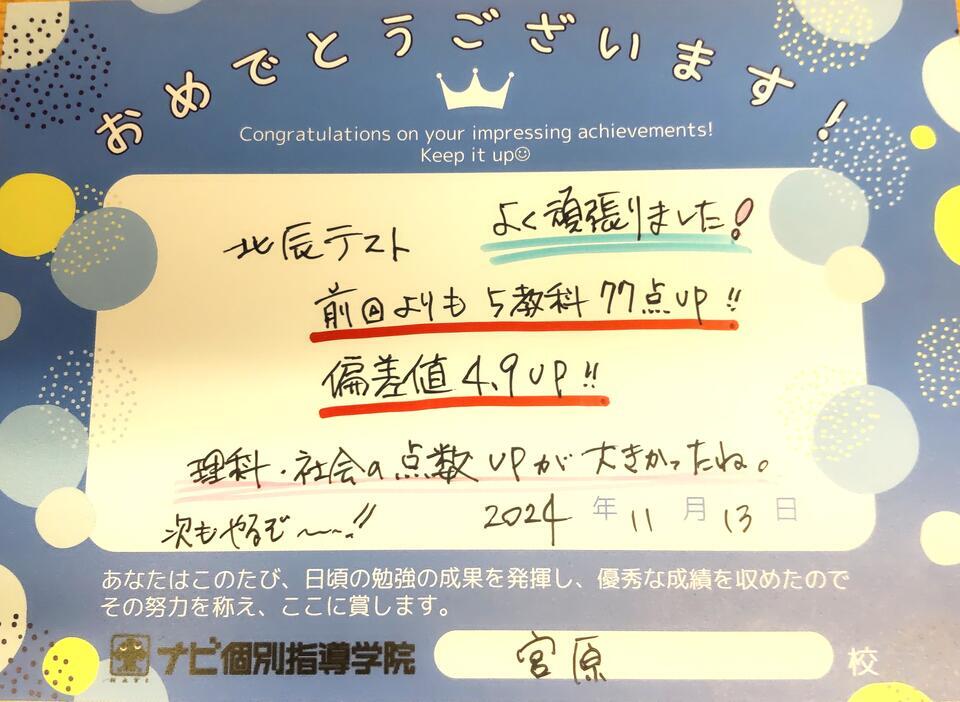 おめでとうございます!
Congratulations on your impressing achievements!
Keep it up☺
北辰テスト よく頑張りました!
前回よりも 5教科 77点up!!
偏差値 4.9 UP!!
理科・社会の点数 UPが大きかったね。
次もやるぞ〜〜!!
2024年 11月 13日
あなたはこのたび、日頃の勉強の成果を発揮し、優秀な成績を収めたので
その努力を称え、ここに賞します。
NAVI ナビ個別指導学院 宮原 校